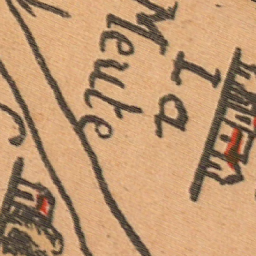 La
Meute